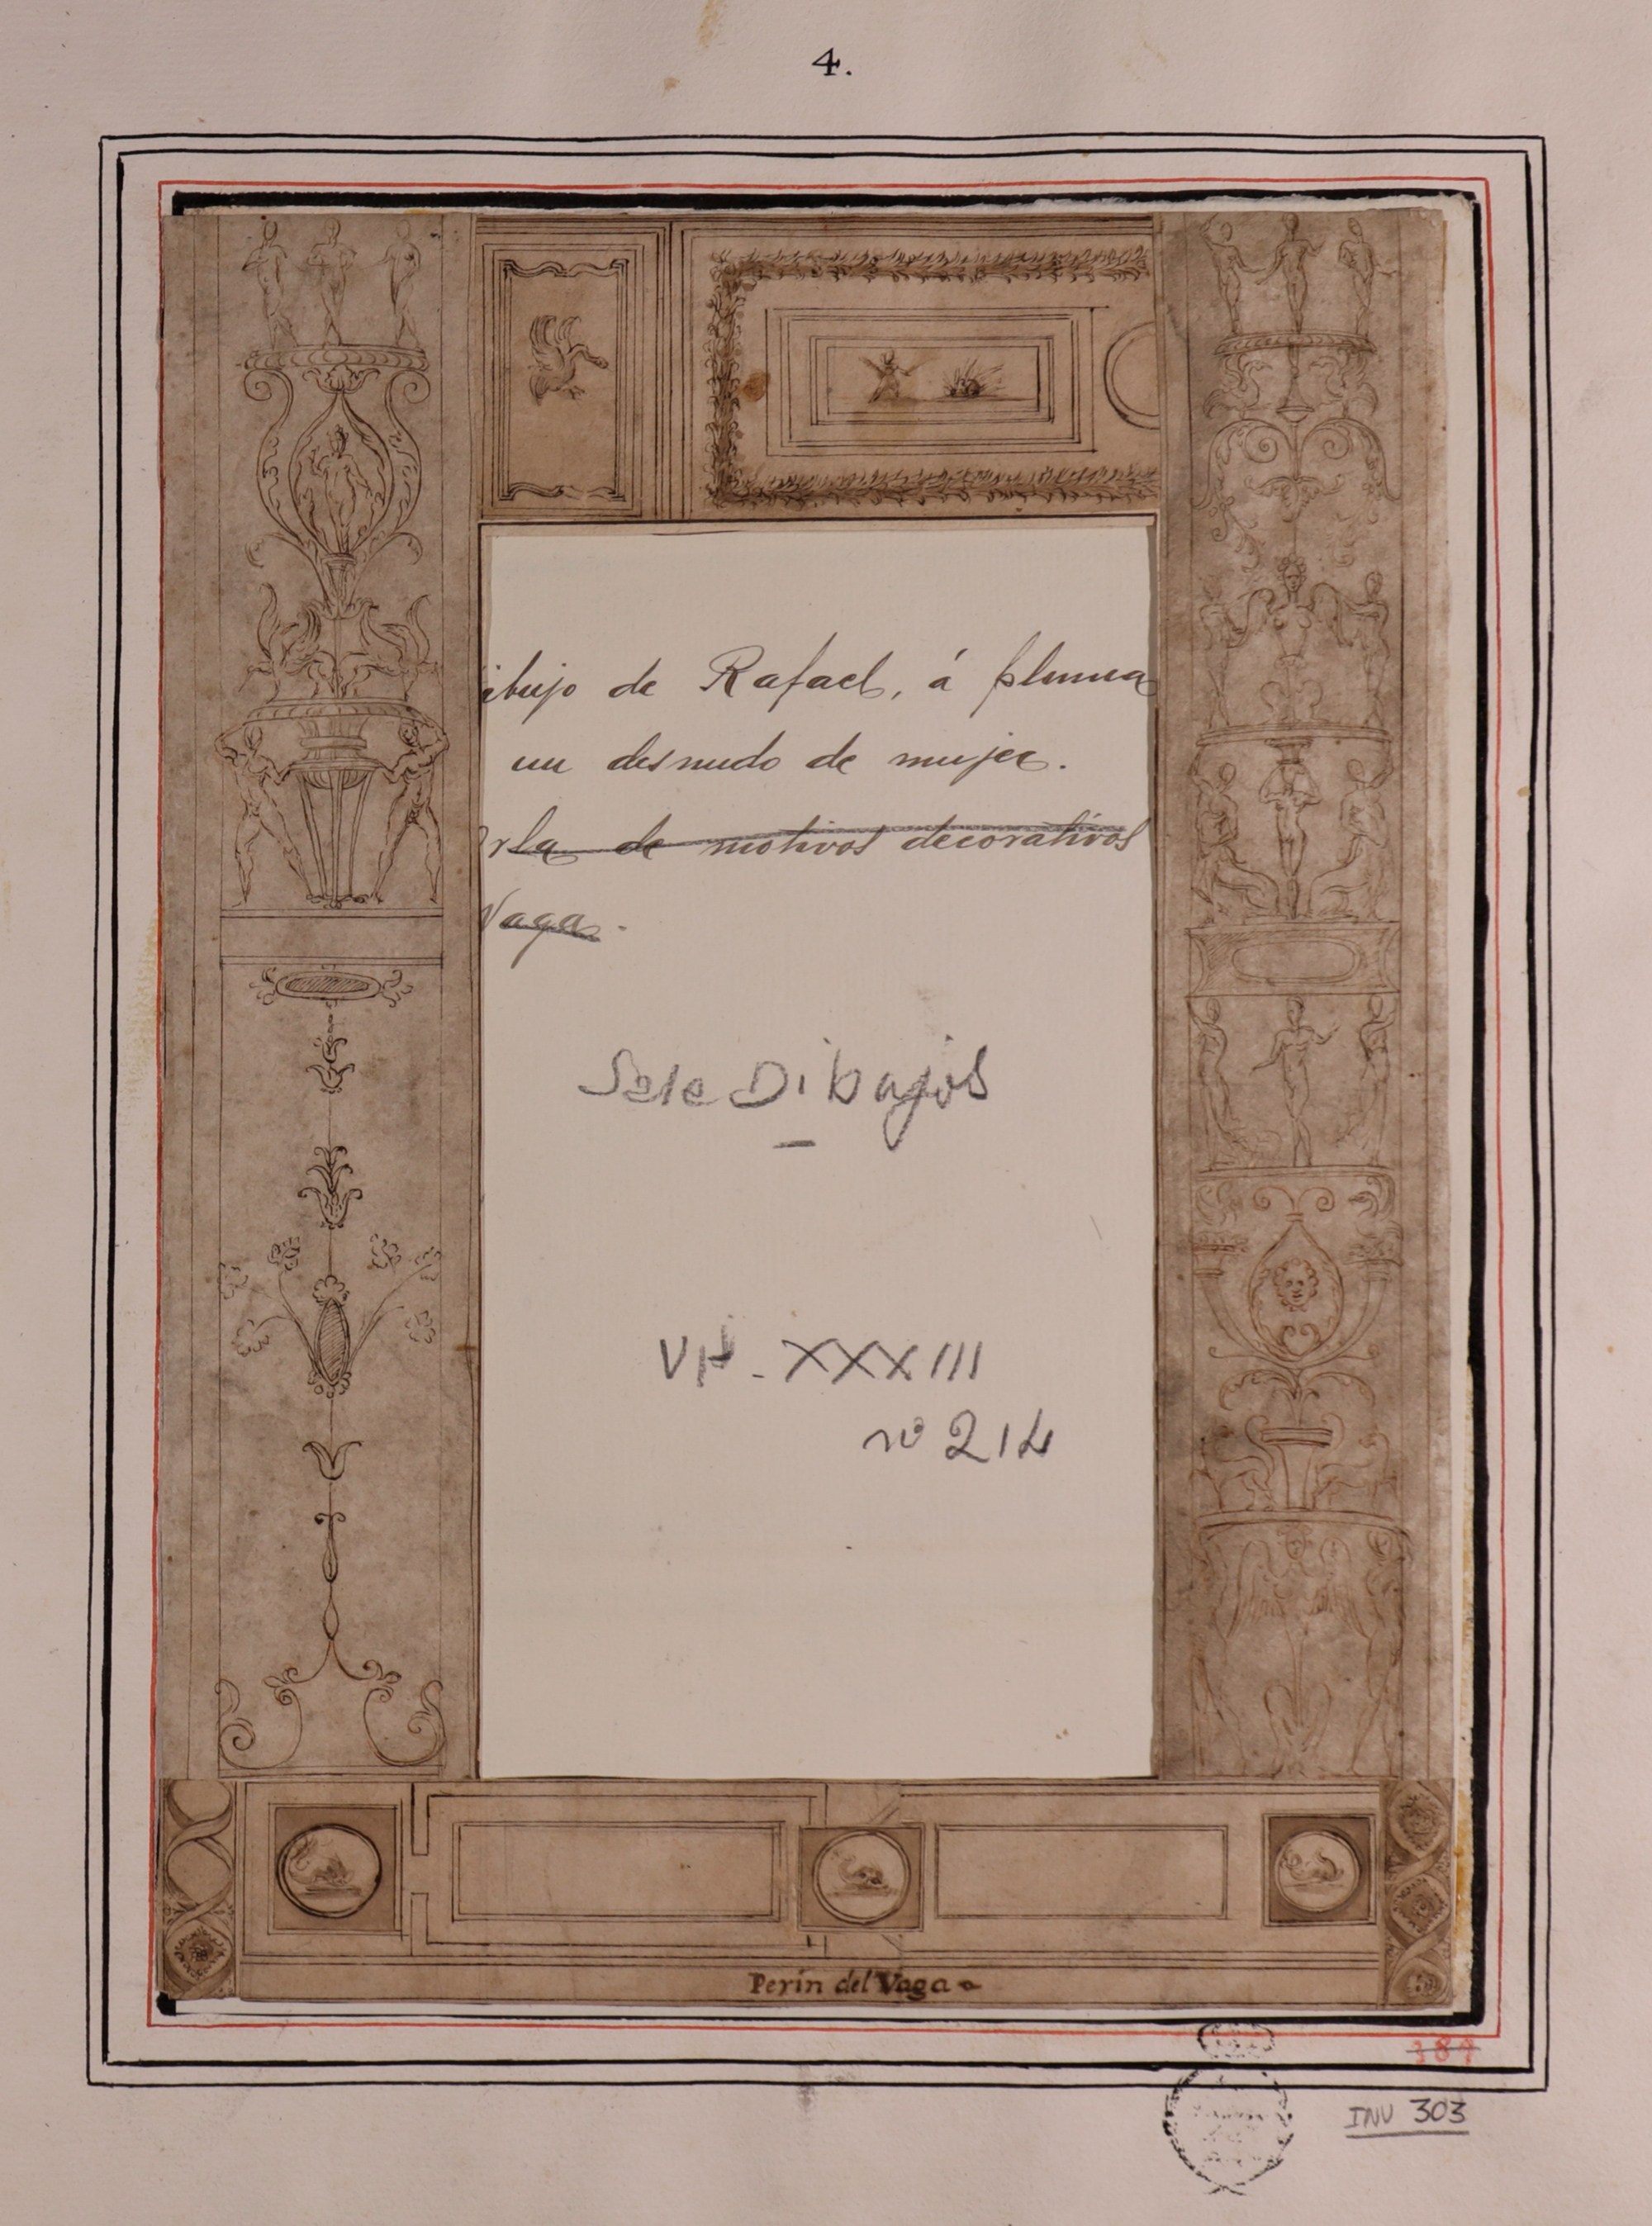 4.
ibujo de Rafael, á pluma
un desnudo de mujer.
rla de motivos decorativos
Vaga.
Dibujos
XXXIII
nº 214
Perin del Vaga
387
INV 303